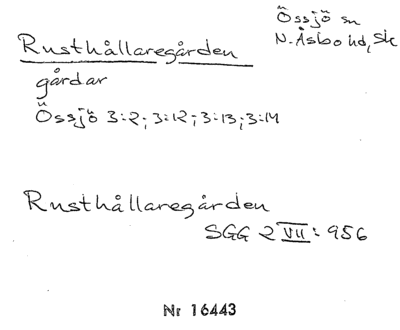 Össjö sn
N. Åsbo hd, Sk
Rusthållaregården
gårdar
Össjö 3:2; 3:12; 3:13; 3:14
Rusthållaregården
SGG 2 VII: 956
Nr 16443